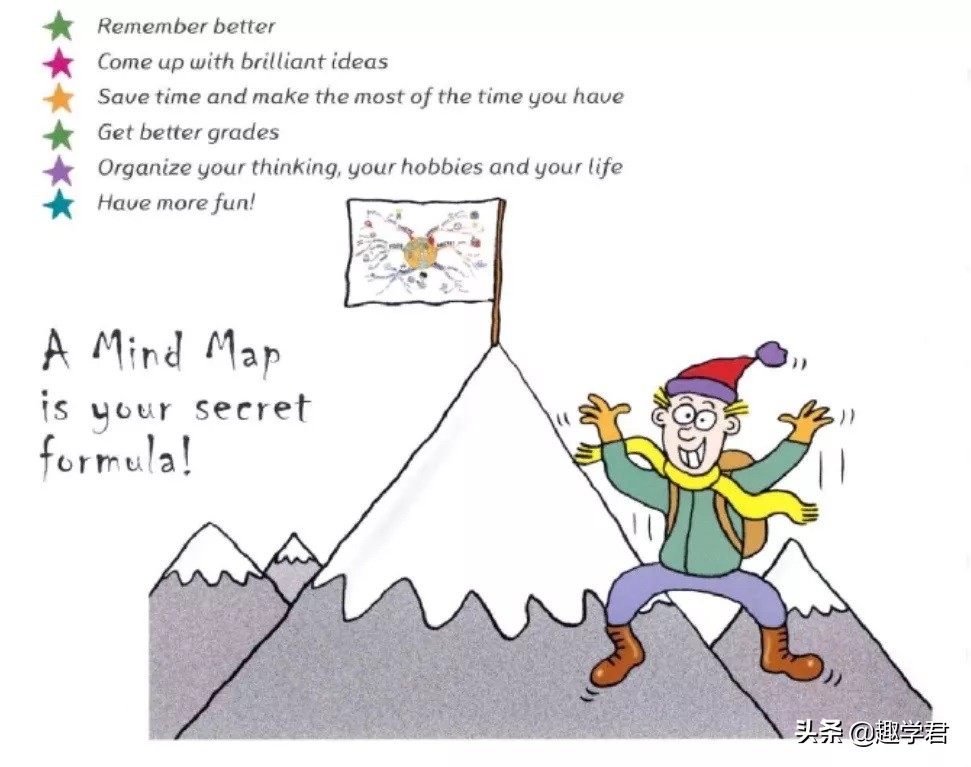 Remember better
Come up with brilliant ideas
Save time and make the most of the time you have
Get better grades
Organize your thinking, your hobbies and your life
Have more fun!
A Mind Map
is your secret
formula!
头条 @趣学君